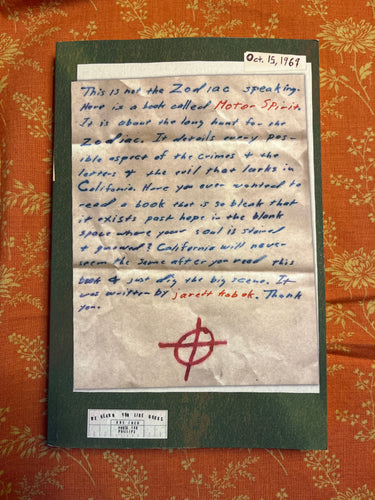 Oct. 15, 1969
This is not the Zodiac speaking.
Here is a book called Motor Spirit.
It is about the long hunt for the
Zodiac. It details every pos-
ible aspect of the crimes & the
letters & the evil that lurks in
California. Have you ever wanted to
read a book that is so bleak that
it exists past hope in the blank
space where your soul is stained
& gnawed? California will never
seem the same after you read this
book & just dig the big scene. It
was written by Jarett Kobek. Thank
you.
WE HEARD YOU LIKE BOOKS